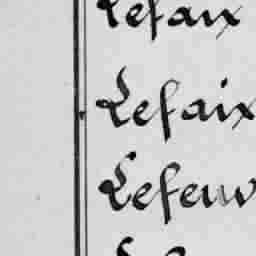 Lefaix
Lefaix
Lefeuv